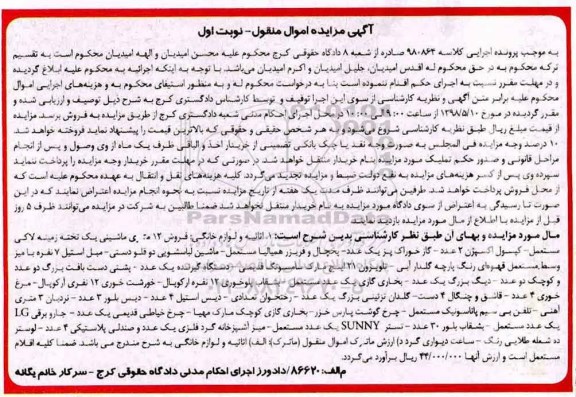 آگهی مزایده اموال منقول- نوبت اول
به موجب پرونده اجرایی کلاسه ۹۸۰۸۶۳ صادره از شعبه ۸ دادگاه حقوقی کرج محکوم علیه محسن امیدیان و الهه امیدیان محکوم است به تقسیم
ترکه محکوم به در حق محکوم له اقدس امیدیان، جلیل امیدیان و اکرم امیدیان می‌باشد. با توجه به اینکه اجرائیه به محکوم علیه ابلاغ گردیده
و در مهلت مقرر نسبت به اجرای حکم اقدام ننموده است بنا به درخواست محکوم له و به منظور استیفای محکوم به و هزینه‌های اجرایی اموال
محکوم علیه برابر متن آگهی و نظریه کارشناسی از سوی این اجرا توقیف و توسط کارشناس دادگستری کرج به شرح ذیل توصیف و ارزیابی شده و
مقرر گردیده در مورخ ۱۳۹۸/۵/۱۰ از ساعت ۹:۰۰ الی ۱۰:۰۰ در محل اجرای احکام مدنی شعبه دادگستری کرج از طریق مزایده به فروش برسد. مزایده
از قیمت مبلغ ریال طبق نظریه کارشناسی شروع می‌شود. به هر شخص حقیقی و حقوقی که بالاترین قیمت را پیشنهاد نماید فروخته خواهد شد.
۱۰ درصد وجه مزایده فی المجلس به صورت وجه نقد یا چک بانکی تضمینی از خریدار اخذ و الباقی ظرف یک ماه از وی وصول و پس از انجام
مراحل قانونی و صدور حکم تملیک مورد مزایده بنام خریدار منتقل خواهد شد. در صورتی که در مهلت مقرر خریدار وجه مزایده را پرداخت ننماید
سپرده وی پس از کسر هزینه‌های مزایده به نفع دولت ضبط و مزایده تجدید می‌گردد. کلیه هزینه‌های نقل و انتقال به عهده محکوم علیه است که
از محل فروش پرداخت خواهد شد. طرفین می‌توانند ظرف مدت یک هفته از تاریخ مزایده نسبت به نحوه انجام مزایده اعتراض نمایند که در این
صورت تا رسیدگی به اعتراض از سوی دادگاه مورد مزایده به نام خریدار منتقل نخواهد شد. ضمنا طالبین به شرکت در مزایده می‌توانند ظرف ۵ روز
قبل از مزایده با اطلاع از مال مورد مزایده بازدید
مال مورد مزایده و بهای آن طبق نظر کارشناسی بدین شرح است: ۱. اثاثیه و لوازم خانگی: فروش ۱۲ متری ماشینی یک تخته زمینه لاکی
مستعمل- کپسول اکسیژن ۲ عدد- گاز خوراک پز یک عدد- یخچال و فریزر هیمالیا مستعمل- ماشین لباسشویی دو قلو دستی- مبل استیل ۷ نفره با میز
وسط مستعمل قهوه‌ای رنگ پارچه گلدار آبی- تلویزیون ۲۱ اینچ مارک سامسونگ قدیمی- دستگاه گیرنده یک عدد- پشتی دست بافت بزرگ دو عدد
و کوچک دو عدد- دیگ بزرگ یک عدد- بخاری گازی یک عدد مستعمل- میز ناهارخوری ۱۲ نفره آرکوپال- خورشت خوری ۱۲ نفری آرکوپال- مرغ
خوری ۴ عدد- قاشق و چنگال ۴ دست- گلدان تزئینی بزرگ یک عدد- رختخواب تعدادی- دیس استیل ۴ عدد- دیس بلور ۳ عدد- نردبان ۳ متری
آهنی- تلفن بی سیم پاناسونیک مستعمل- چرخ گوشت پارس خزر- بخاری گازی کوچک مارک مهپا- چرخ خیاطی قدیمی یک عدد- جارو برقی LG
یک عدد مستعمل- بشقاب بلور ۳۰ عدد- تستر SUNNY یک عدد مستعمل- میز آشپزخانه گرد فلزی یک عدد و صندلی پلاستیکی ۴ عدد- لوستر
ده شعله طلایی رنگ- ساعت دیواری گرد د) ارزش ماترک اموال منقول (ماترک): الف) اثاثیه و لوازم خانگی به شرح مندرج می باشد. ضمنا کلیه اقلام
مستعمل است و ارزش آنها ۴۴/۰۰۰/۰۰۰ ریال برآورد می‌گردد.
م‌الف: ۸۶۶۲۰/ دادورز اجرای احکام مدنی دادگاه حقوقی کرج- سرکار خانم یگانه